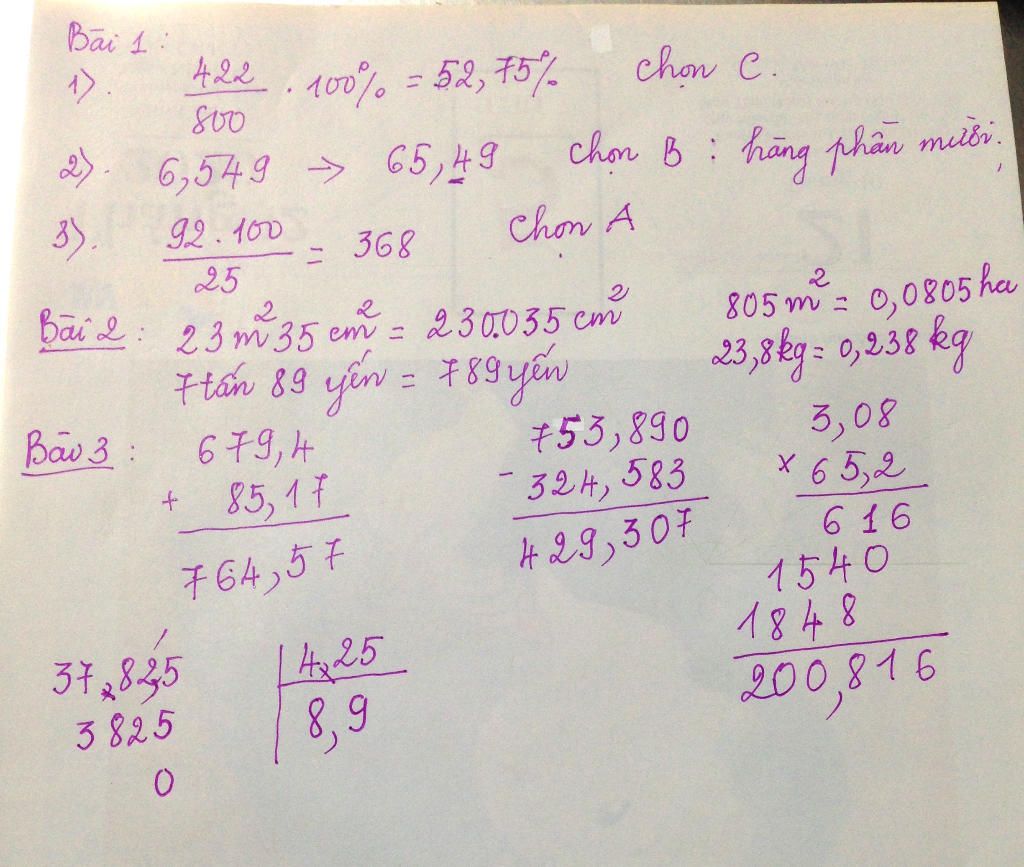 Bài 1 :
1). 422/800 . 100% = 52,75% chọn C.
2). 6,549 → 65,49 chọn B : hàng phần mười.
3). 92.100/25 = 368 chọn A
Bài 2 : 23m² 35cm² = 230.035 cm² 805m² = 0,0805 ha
7 tấn 89 yến = 789 yến 23,8kg = 0,238 kg
Bài 3 : 679,4 753,890 3,08
+ 85,17 - 324,583 × 65,2
764,57 429,307 616
1540
1848
200,816
37,825 4,25
3825 8,9
0